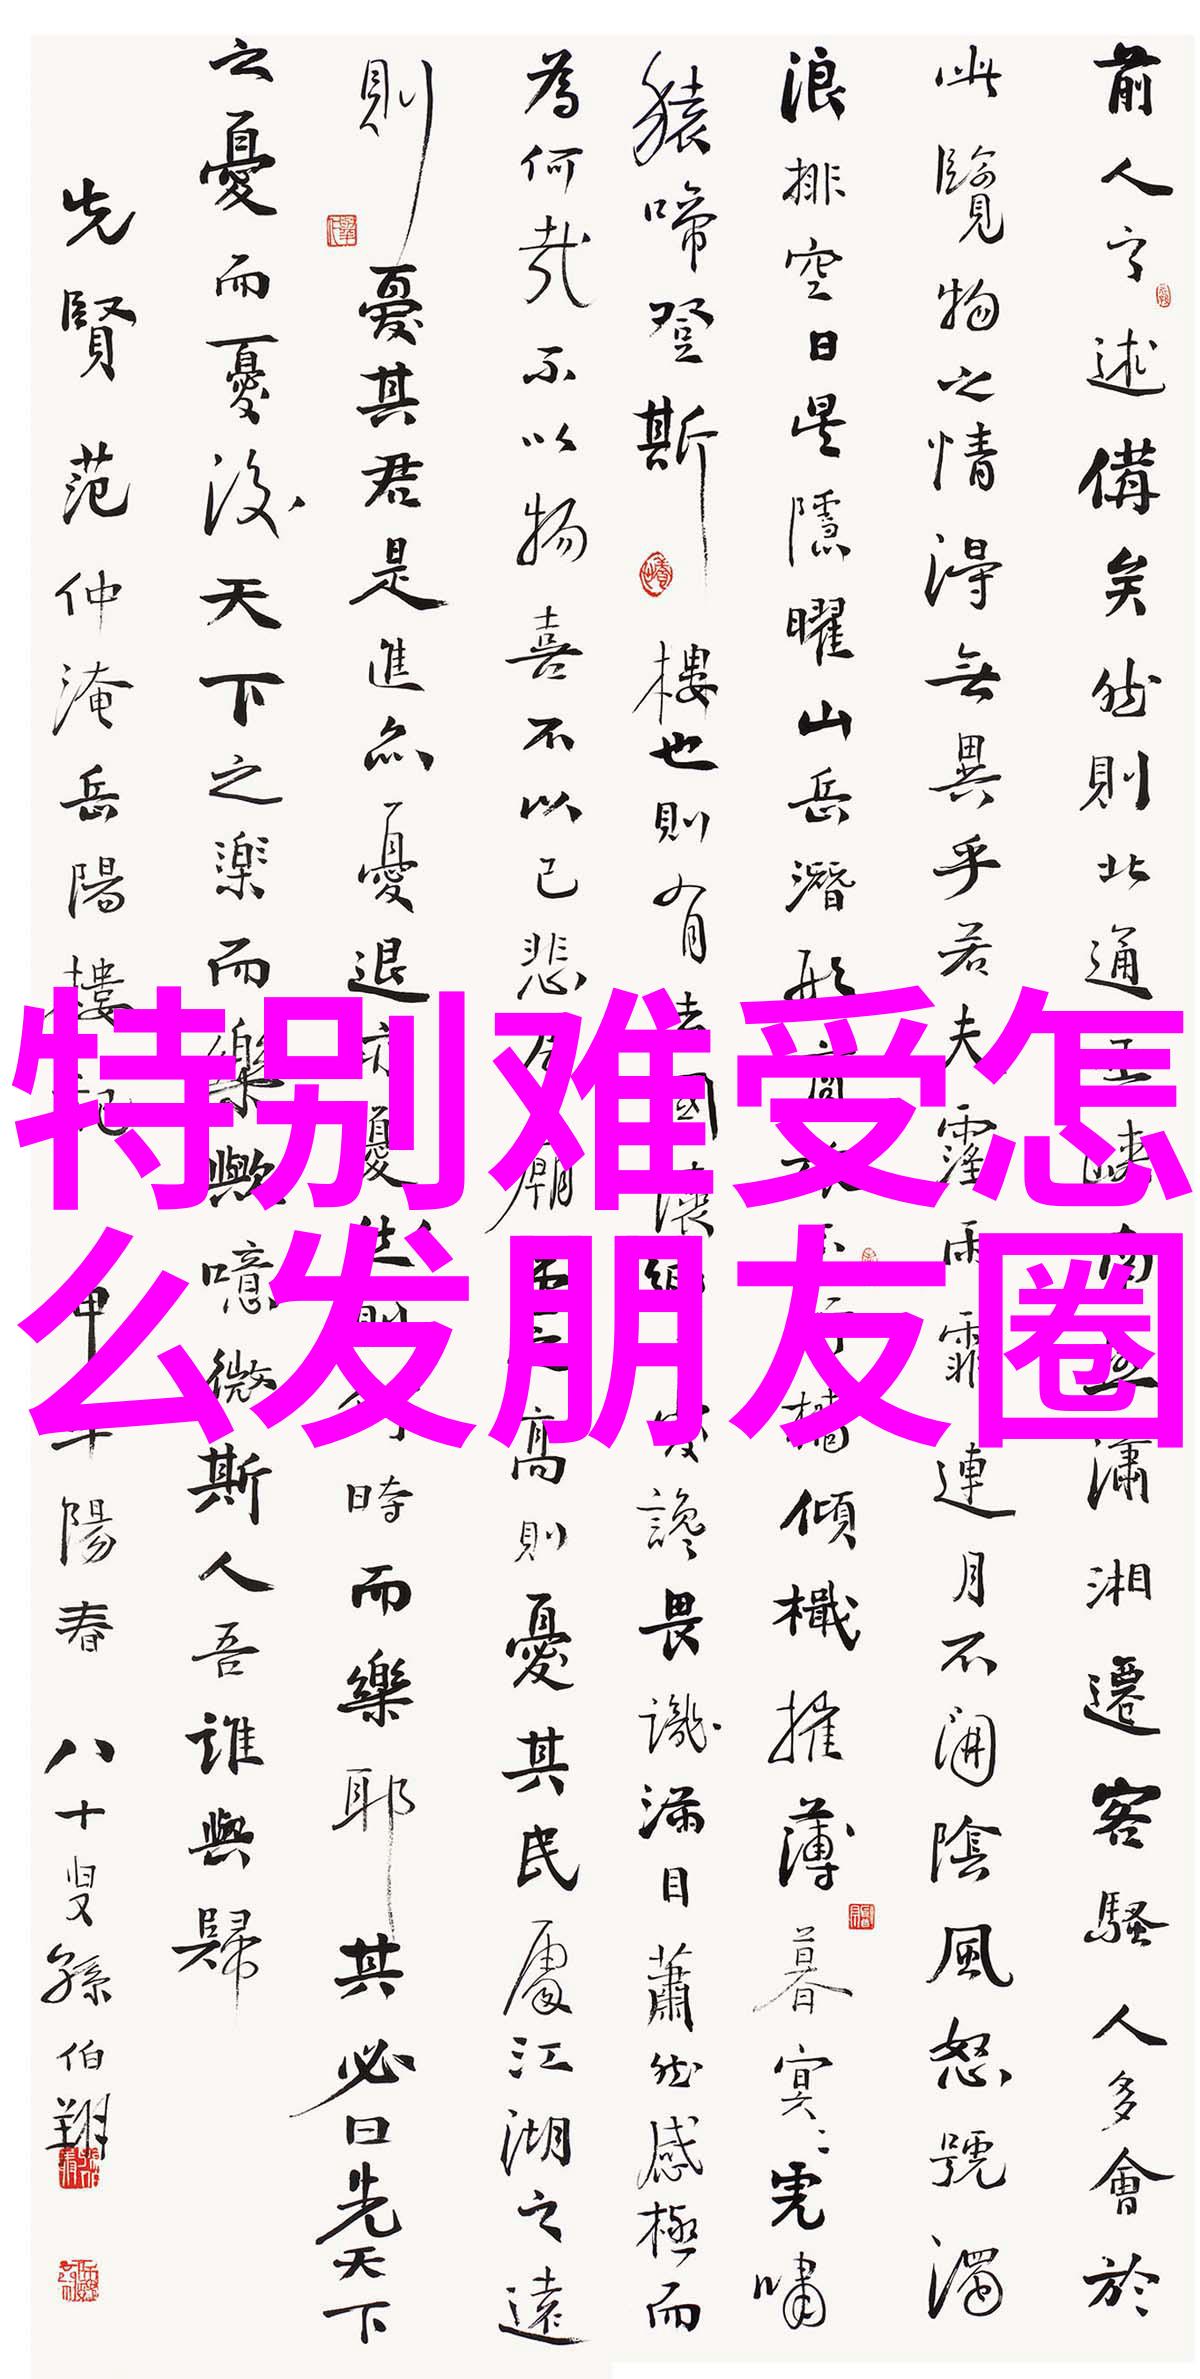 特别难受怎
么发朋友圈
前人之述備矣然則北通巫峽南極瀟湘遷客騷人多會於
此覽物之情得無異乎若夫霪雨霏連月不開陰風怒號濁
浪排空日星隱曜山岳潛形商旅不行檣傾檝摧薄暮冥冥虎嘯
猿啼登斯樓也則有去國懷鄉憂讒畏譏滿目蕭然感極而
為何哉不以物喜不以己悲居廟堂之高則憂其民處江湖之遠
則憂其君是進亦憂退亦憂然則何時而樂耶其必曰先天下
之憂而憂後天下之樂而樂歟噫微斯人吾誰與歸
先賢范仲淹岳陽樓記甲午陽春八十叟孫伯翔